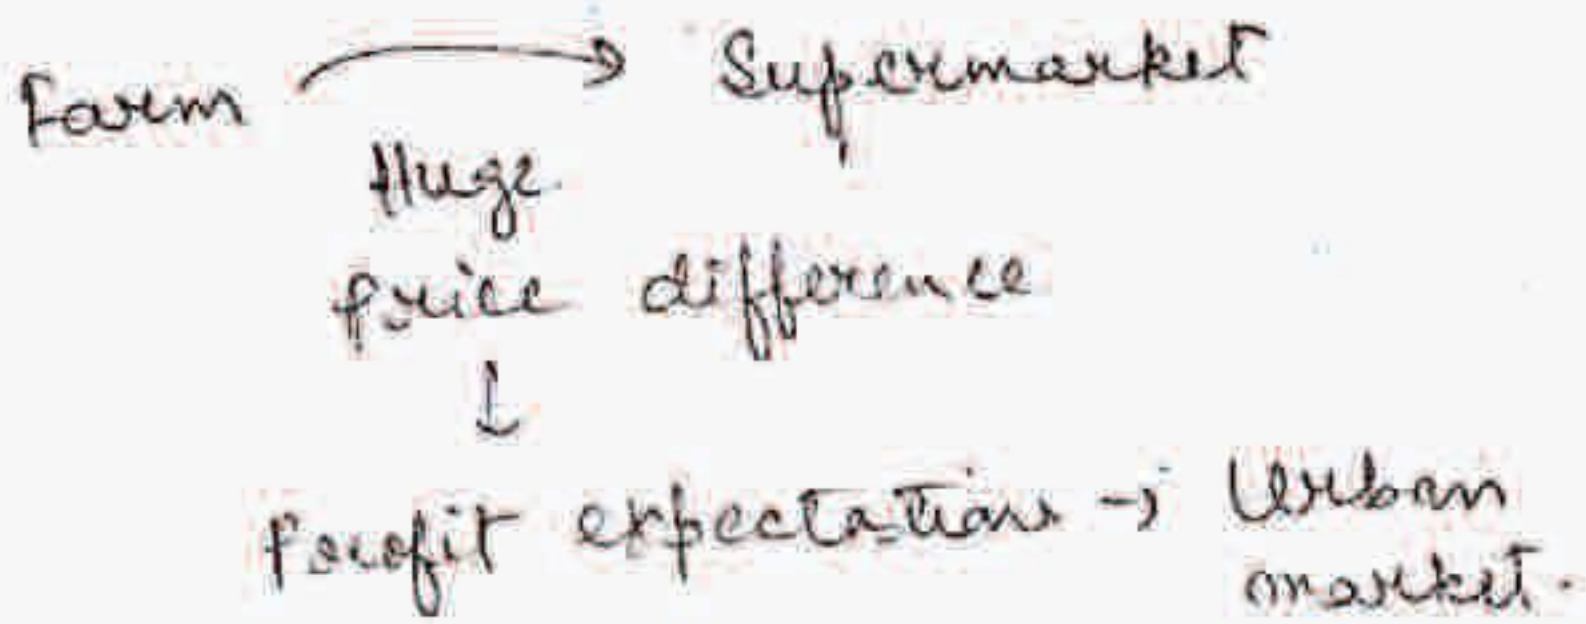 Farm → Supermarket
Huge
price difference
↓
Profit expectations → Urban
market.